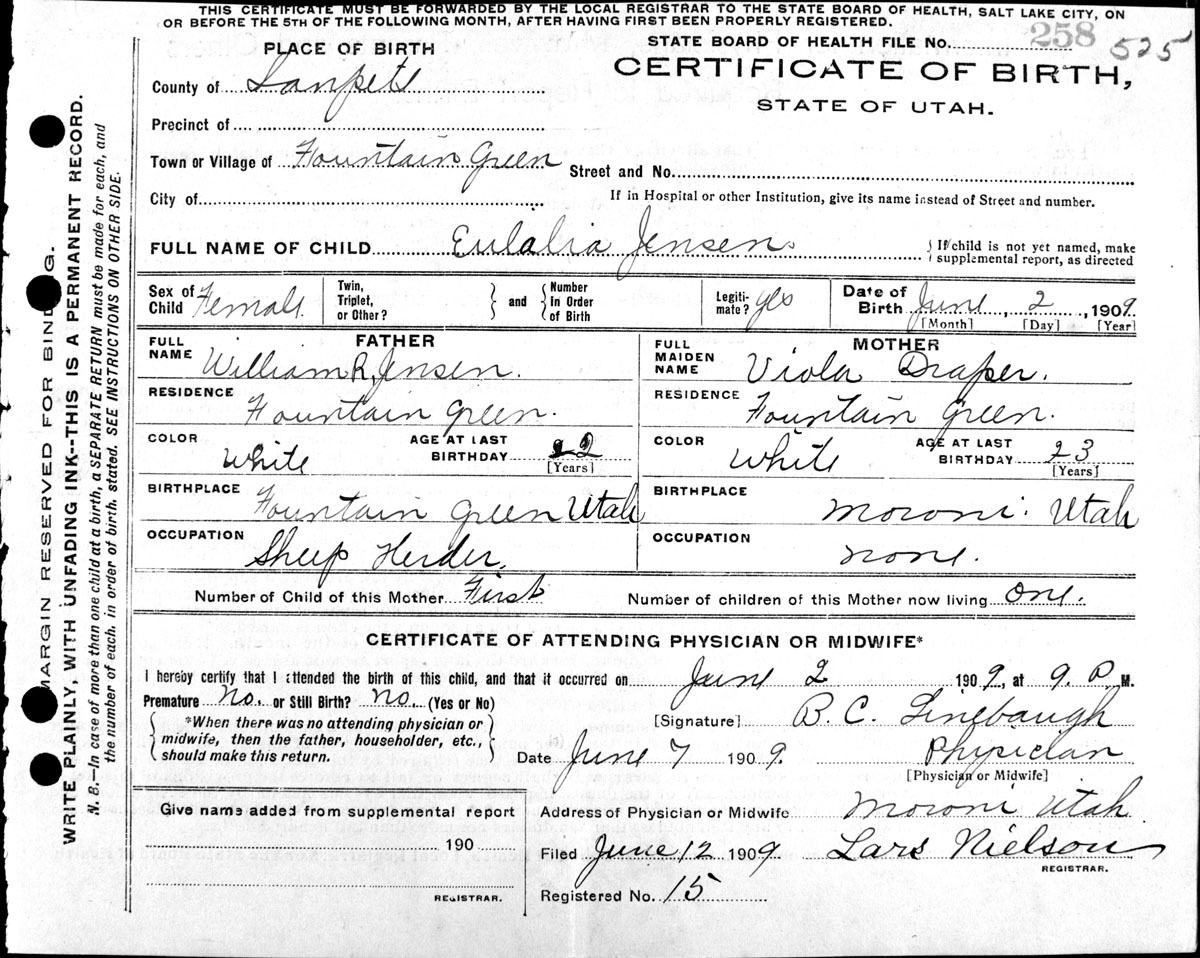 THIS CERTIFICATE MUST BE FORWARDED BY THE LOCAL REGISTRAR TO THE STATE BOARD OF HEALTH, SALT LAKE CITY, ON
OR BEFORE THE 5TH OF THE FOLLOWING MONTH, AFTER HAVING FIRST BEEN PROPERLY REGISTERED.
PLACE OF BIRTH
STATE BOARD OF HEALTH FILE No. 258 525
County of Sanpete
CERTIFICATE OF BIRTH,
STATE OF UTAH.
Precinct of
Town or Village of Fountain Green
Street and No.
City of
If in Hospital or other Institution, give its name instead of Street and number.
FULL NAME OF CHILD Eulalia Jensen
{ If child is not yet named, make supplemental report, as directed
Sex of Child Female. Twin, Triplet, or Other? } and { Number In Order of Birth Legitimate? yes Date of Birth June 2, 1909.
[Month] [Day] [Year]
FATHER
FULL NAME William R. Jensen.
RESIDENCE Fountain Green.
COLOR White AGE AT LAST BIRTHDAY 22
[Years]
BIRTHPLACE Fountain Green Utah
OCCUPATION Sheep Herder.
MOTHER
FULL MAIDEN NAME Viola Draper.
RESIDENCE Fountain Green.
COLOR White AGE AT LAST BIRTHDAY 23
[Years]
BIRTHPLACE Moroni. Utah
OCCUPATION none.
Number of Child of this Mother First Number of children of this Mother now living One.
CERTIFICATE OF ATTENDING PHYSICIAN OR MIDWIFE*
I hereby certify that I attended the birth of this child, and that it occurred on June 2 1909, at 9. P. M.
Premature no. or Still Birth? no. (Yes or No)
{ *When there was no attending physician or midwife, then the father, householder, etc., should make this return. }
[Signature] B. C. Linebaugh
Date June 7 1909. Physician
[Physician or Midwife]
Give name added from supplemental report
190
REGISTRAR.
Address of Physician or Midwife Moroni Utah
Filed June 12 1909 Lars Nielson
REGISTRAR.
Registered No. 15
MARGIN RESERVED FOR BINDING.
WRITE PLAINLY, WITH UNFADING INK--THIS IS A PERMANENT RECORD.
N. B.—In case of more than one child at a birth, a SEPARATE RETURN must be made for each, and
the number of each, in order of birth, stated. SEE INSTRUCTIONS ON OTHER SIDE.